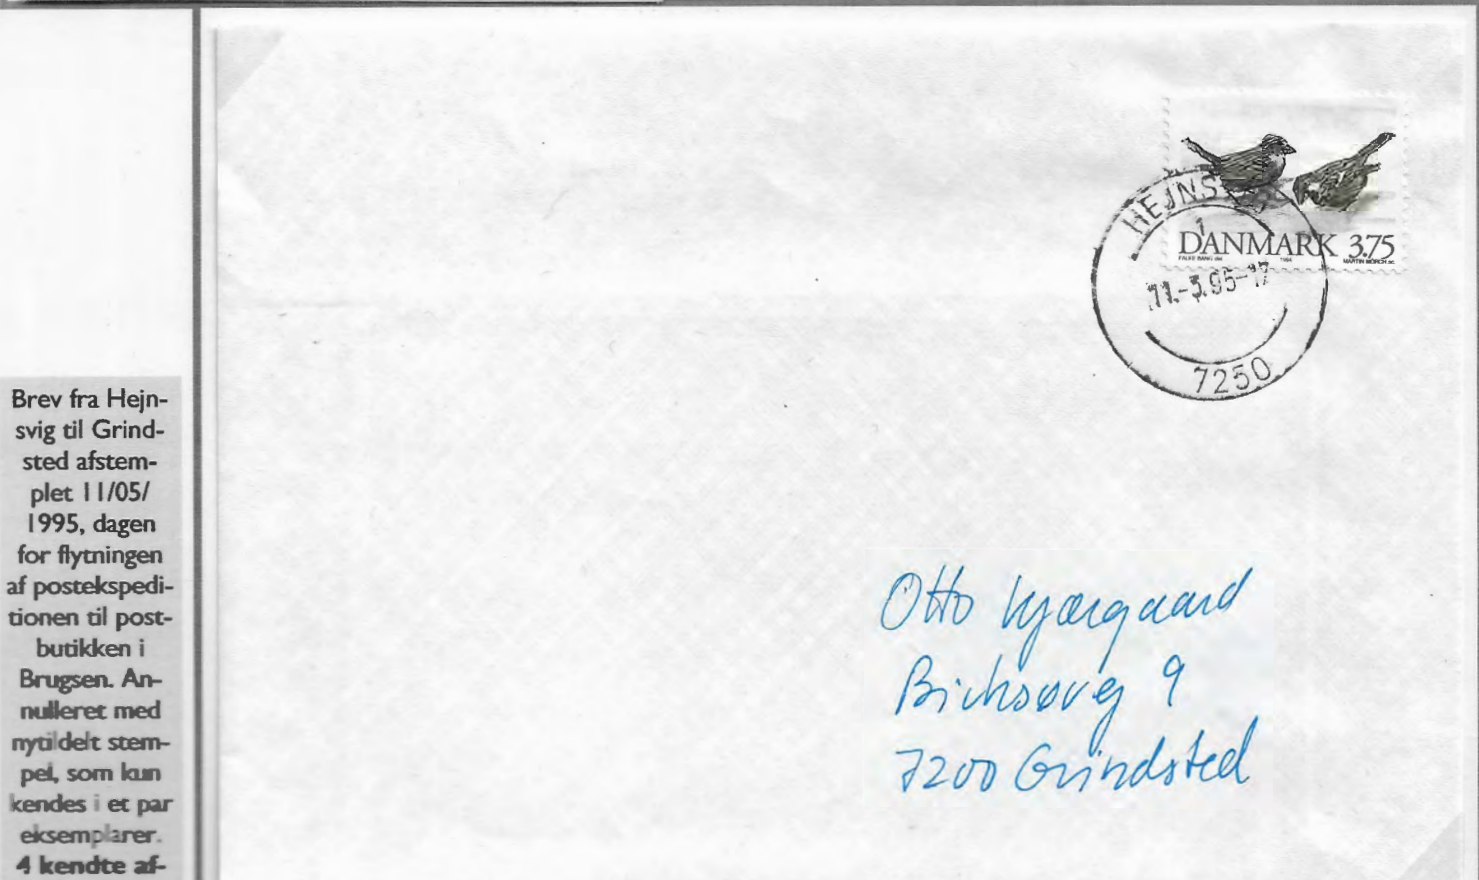 Brev fra Hejn-
svig til Grind-
sted afstem-
plet 11/05/
1995, dagen
for flytningen
af postekspedi-
tionen til post-
butikken i
Brugsen. An-
nulleret med
nytildelt stem-
pel, som kun
kendes i et par
eksemplarer.
4 kendte af-
HEJNS
1
DANMARK 3.75
1994
MARTIN MÖRCK sc.
11.-3.95-17
7250
Otto Kjærgaard
Birksøvej 9
7200 Grindsted